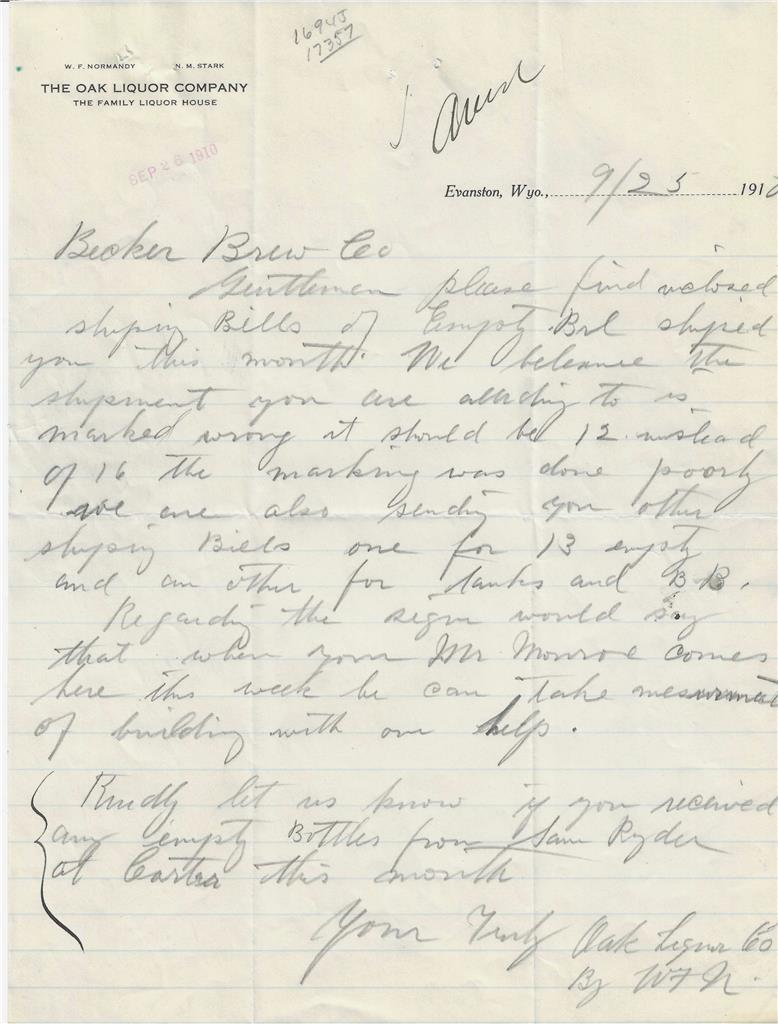 16945
17357
W. F. NORMANDY N. M. STARK
THE OAK LIQUOR COMPANY
THE FAMILY LIQUOR HOUSE
SEP 26 1910
Evanston, Wyo., 9/25 1910
Becker Brew Co
Gentlemen please find inclosed
shiping Bills of Empty Brl shiped
you this month. We beleave the
shipment you are alluding to is
marked wrong it should be 12 instead
of 16 the marking was done poorly
we are also sending you other
shiping Bills one for 13 empty
and an other for tanks and B B.
Regarding the sign would say
that when your Mr Monroe comes
here this week he can take mesurment
of building with our help.
Kindly let us know if you received
any empty Bottles from Sam Ryder
at Carter this month
Your Truly Oak Liquor Co
By W F N.